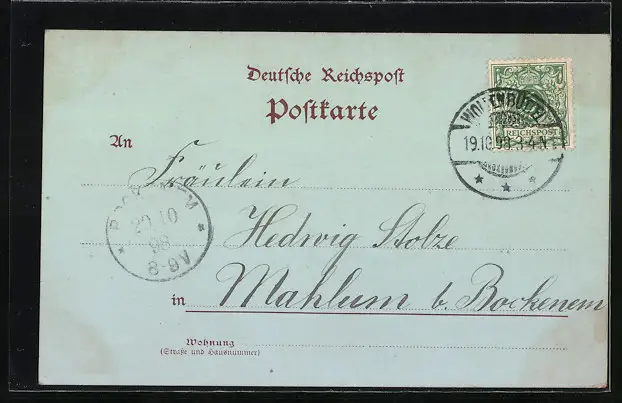 Deutsche Reichspost
Postkarte
REICHSPOST
WOLFENBÜTTEL
19.10.98.3-4.N
An
Fräulein
BOCKENEM
20 10
98
8-9V
Hedwig Stolze
in Mahlum b. Bockenem
Wohnung
(Straße und Hausnummer)